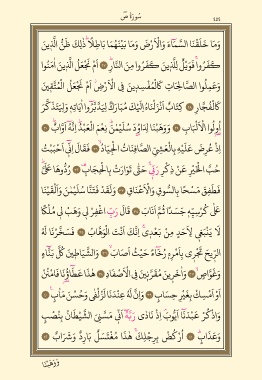 سُورَةُ صٓ
٤٥٤
وَمَا خَلَقْنَا السَّمَٓاءَ وَالْاَرْضَ وَمَا بَيْنَهُمَا بَاطِلًاۜ ذٰلِكَ ظَنُّ الَّذٖينَ
كَفَرُواۚ فَوَيْلٌ لِلَّذٖينَ كَفَرُوا مِنَ النَّارِۜ ﴿٢٧﴾ اَمْ نَجْعَلُ الَّذٖينَ اٰمَنُوا
وَعَمِلُوا الصَّالِحَاتِ كَالْمُفْسِدٖينَ فِي الْاَرْضِۘ اَمْ نَجْعَلُ الْمُتَّقٖينَ
كَالْفُجَّارِ ﴿٢٨﴾ كِتَابٌ اَنْزَلْنَاهُ اِلَيْكَ مُبَارَكٌ لِيَدَّبَّرُٓوا اٰيَاتِهٖ وَلِيَتَذَكَّرَ
اُو۬لُوا الْاَلْبَابِ ﴿٢٩﴾ وَوَهَبْنَا لِدَاوُ۫دَ سُلَيْمٰنَۜ نِعْمَ الْعَبْدُۜ اِنَّهُٓ اَوَّابٌۜ ﴿٣٠﴾
اِذْ عُرِضَ عَلَيْهِ بِالْعَشِيِّ الصَّافِنَاتُ الْجِيَادُۙ ﴿٣١﴾ فَقَالَ اِنّٖٓي اَحْبَبْتُ
حُبَّ الْخَيْرِ عَنْ ذِكْرِ رَبّٖيۚ حَتّٰى تَوَارَتْ بِالْحِجَابِ۠ ﴿٣٢﴾ رُدُّوهَا عَلَيَّۜ
فَطَفِقَ مَسْحًا بِالسُّوقِ وَالْاَعْنَاقِ ﴿٣٣﴾ وَلَقَدْ فَتَنَّا سُلَيْمٰنَ وَاَلْقَيْنَا
عَلٰى كُرْسِيِّهٖ جَسَدًا ثُمَّ اَنَابَ ﴿٣٤﴾ قَالَ رَبِّ اغْفِرْ لٖي وَهَبْ لٖي مُلْكًا
لَا يَنْبَغٖي لِاَحَدٍ مِنْ بَعْدٖيۚ اِنَّكَ اَنْتَ الْوَهَّابُ ﴿٣٥﴾ فَسَخَّرْنَا لَهُ
الرّٖيحَ تَجْرٖي بِاَمْرِهٖ رُخَٓاءً حَيْثُ اَصَابَۙ ﴿٣٦﴾ وَالشَّيَاطٖينَ كُلَّ بَنَّٓاءٍ
وَغَوَّاصٍۙ ﴿٣٧﴾ وَاٰخَرٖينَ مُقَرَّنٖينَ فِي الْاَصْفَادِ ﴿٣٨﴾ هٰذَا عَطَٓاؤُ۬نَا فَامْنُنْ
اَوْ اَمْسِكْ بِغَيْرِ حِسَابٍ ﴿٣٩﴾ وَاِنَّ لَهُ عِنْدَنَا لَزُلْفٰى وَحُسْنَ مَاٰبٍ۟ ﴿٤٠﴾
وَاذْكُرْ عَبْدَنَٓا اَيُّوبَۢ اِذْ نَادٰى رَبَّهُٓ اَنّٖي مَسَّنِيَ الشَّيْطَانُ بِنُصْبٍ
وَعَذَابٍۜ ﴿٤١﴾ اُرْكُضْ بِرِجْلِكَۚ هٰذَا مُغْتَسَلٌ بَارِدٌ وَشَرَابٌ ﴿٤٢﴾
وَوَهَبْنَا